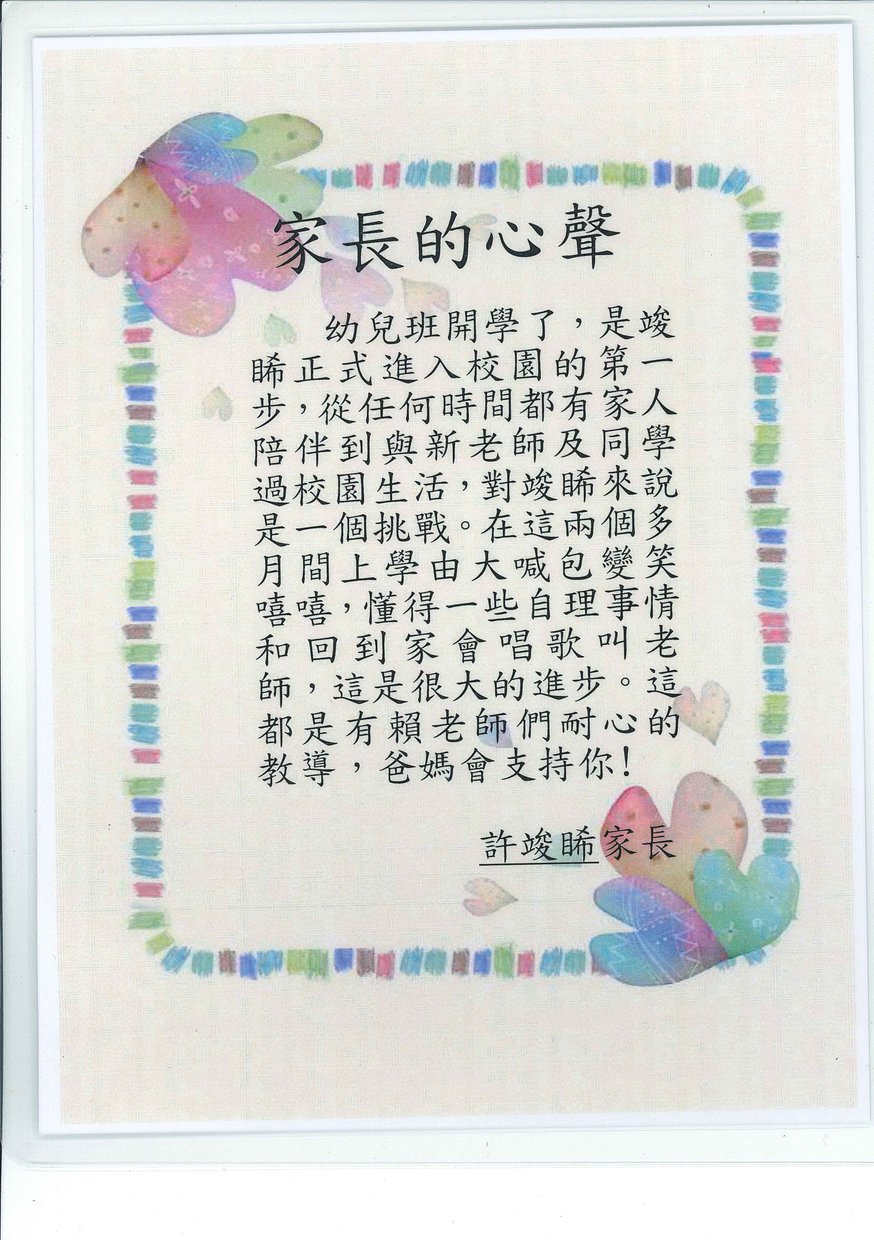 家長的心聲
幼兒班開學了，是竣
睎正式進入校園的第一
步，從任何時間都有家人
陪伴到與新老師及同學
過校園生活，對竣睎來說
是一個挑戰。在這兩個多
月間上學由大喊包變笑
嘻嘻，懂得一些自理事情
和回到家會唱歌叫老
師，這是很大的進步。這
都是有賴老師們耐心的
教導，爸媽會支持你！
許竣睎家長